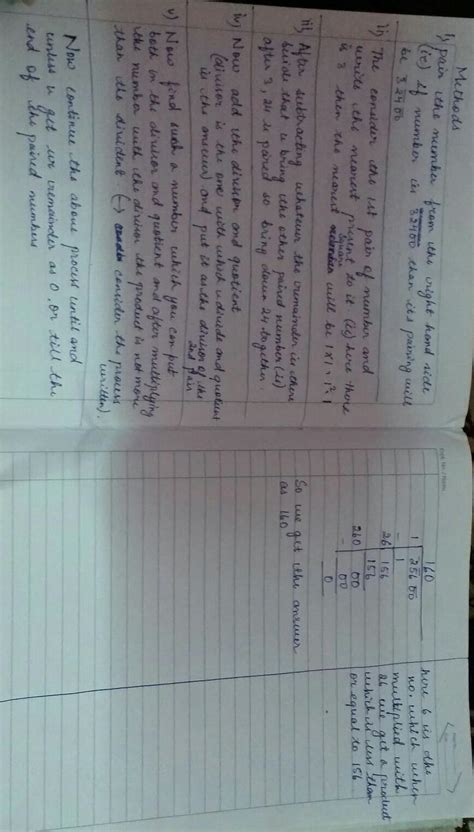 Methods
i) pair the number from the right hand side
(ie) if number is 32400 than its pairing will
be 3 24 00
ii) The consider the 1st pair of number and
write the nearest present to it (ie) here there
is 3 then the nearest square will be 1×1, 1²=1
iii) After subtracting whatever the remainder is there
beside that is bring the other paired number (ie)
after 3, 24 is paired so bring down 24 together.
iv) Now add the divisor and quotient
(divisor is the one with which u divide and quotient
is the answer) and put is as the divisor of the
2nd pair
v) Now find such a number which you can put
both on the divisor and quotient and after multiplying
the number with the divisor the product is not more
than the divident. (→ consider the process
written).
Now continue the above process until and
unless u get ur remainder as 0. or till the
end of the paired numbers
160
1 25600
- 1
26 156
156
260 00
- 00
0
here 6 is the
no. which when
multiplied with
26 we get a product
which is less than
or equal to 156
So we get the answer
as 160